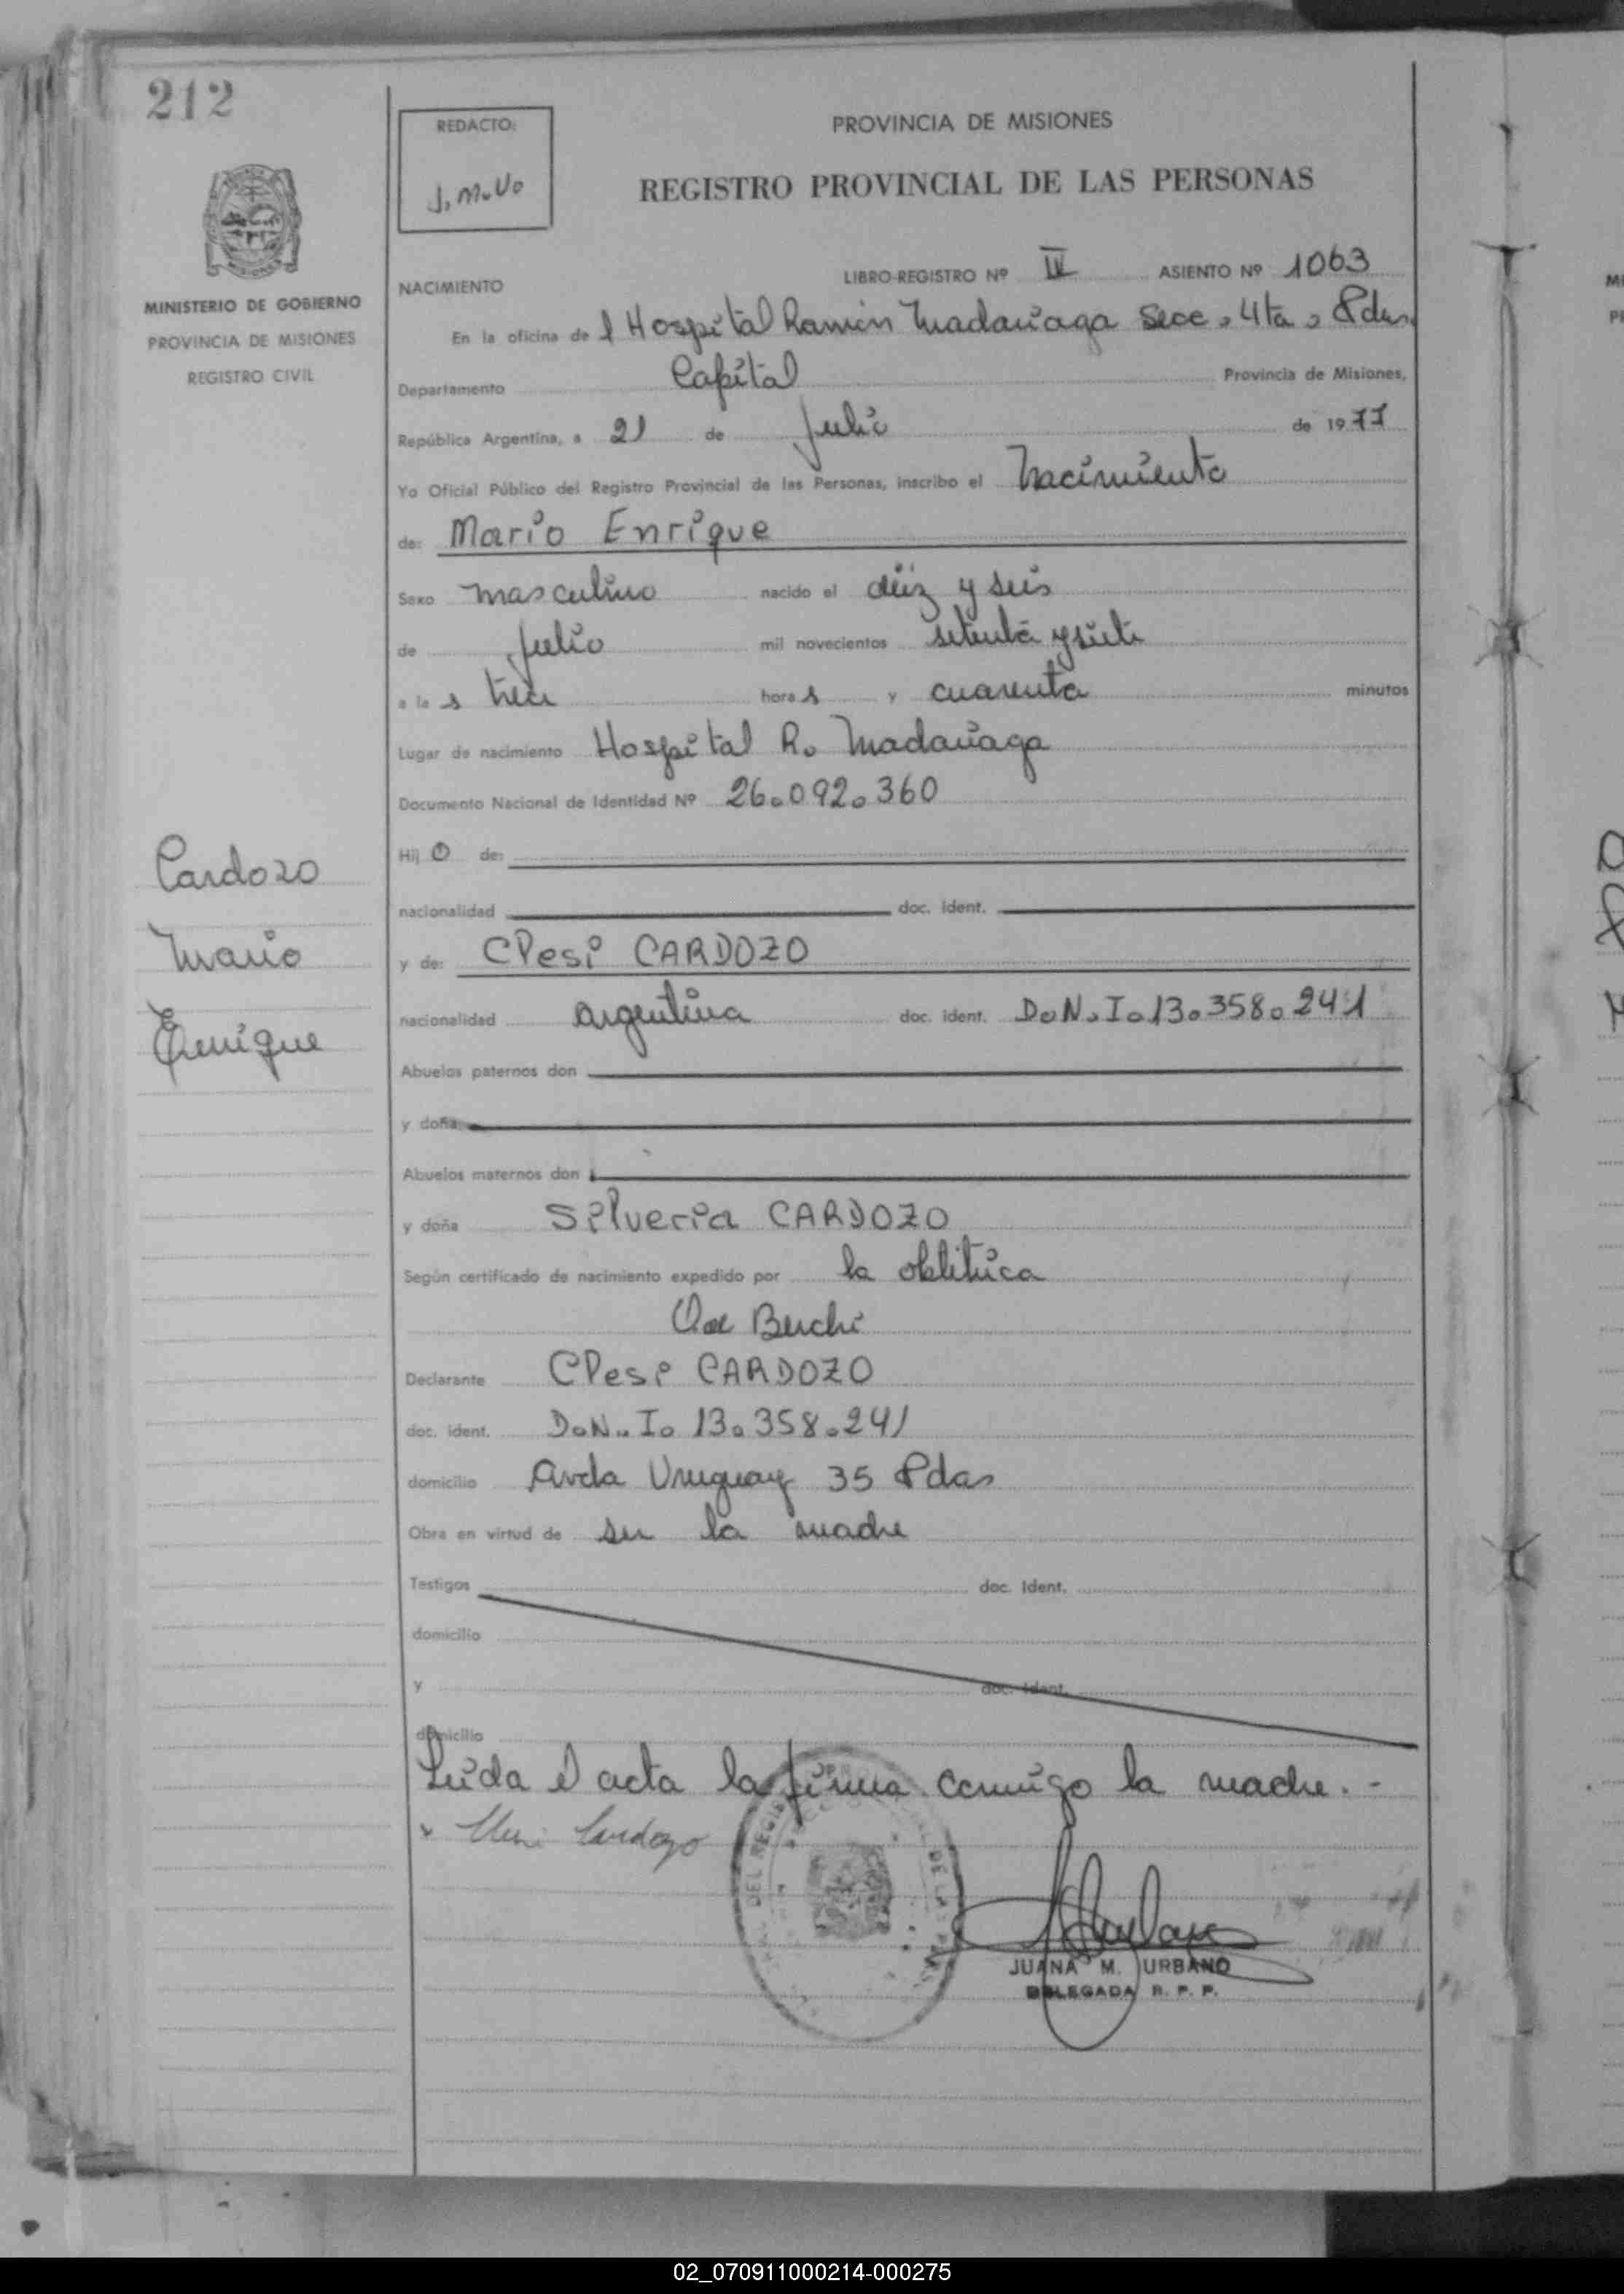 212
REDACTO:
J.M.Uo
PROVINCIA DE MISIONES
REGISTRO PROVINCIAL DE LAS PERSONAS
MINISTERIO DE GOBIERNO
PROVINCIA DE MISIONES
REGISTRO CIVIL
NACIMIENTO LIBRO-REGISTRO Nº IV ASIENTO Nº 1063
En la oficina de l Hospital Ramón Madariaga Secc. 4ta, Pdas.
Departamento Capital Provincia de Misiones,
República Argentina, a 21 de Julio de 1977
Yo Oficial Público del Registro Provincial de las Personas, inscribo el Nacimiento
de: Mario Enrique
Sexo masculino nacido el diéz y seis
de Julio mil novecientos setenta y siete
a la s tres hora s y cuarenta minutos
Lugar de nacimiento Hospital R. Madariaga
Documento Nacional de Identidad Nº 26.092.360
Hij o de:
nacionalidad doc. ident.
y de: Clesi CARDOZO
nacionalidad argentina doc. ident. D.N.I. 13.358.241
Abuelos paternos don
y doña
Abuelos maternos don
y doña Silveria CARDOZO
Según certificado de nacimiento expedido por la obstétrica
Berchi
Declarante Clesi CARDOZO
doc. ident. D.N.I. 13.358.241
domicilio Avda Uruguay 35 Pdas
Obra en virtud de ser la madre
Testigos doc. Ident.
domicilio
y doc. Ident.
domicilio
Leída el acta la firma conmigo la madre. -
Clesi Cardozo
JUANA M. URBANO
DELEGADA R. P. P.
Cardozo
Mario
Enrique
02_070911000214-000275